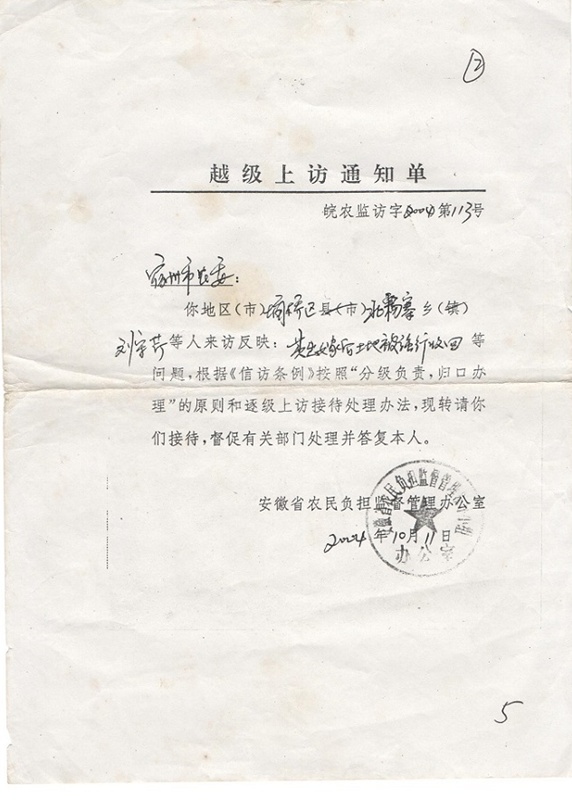 ②
越级上访通知单
皖农监访字2004第113号
宿州市农委：
你地区（市）埇桥区县（市）北杨寨乡（镇）
刘学芹等人来访反映：其出嫁后土地被强行收回等
问题，根据《信访条例》按照“分级负责，归口办
理”的原则和逐级上访接待处理办法，现转请你
们接待，督促有关部门处理并答复本人。
安徽省农民负担监督管理办公室
2004年10月11日
办公室
5